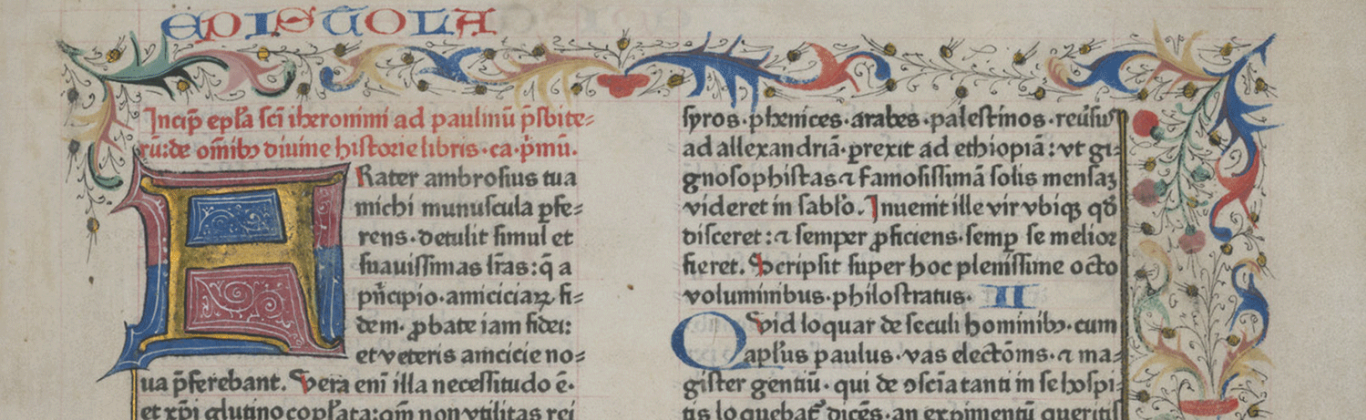 EPISTOLA
Incip̄ ep̄la sc̄i iheronimi ad paulinū p̄sbite-
rū: de om̄ibꝰ diuine historie libris · ca · p̄mū ·
F Rater ambrosius tua
michi munuscula ꝑfe-
rens · detulit simul et
suauissimas lr̄as: q̄ a
pn̄cipio · amiciciaꝝ fi-
dem · ꝓbate iam fidei:
et veteris amicicie no-
ua p̄ferebant. Vera eni illa necessitudo ē ·
et xp̄i glutino copl̄ata: qm̄ non vtilitas rei
syros · phenices · arabes · palestinos · reu͛suꝰ
ad allexandriā · ꝑrexit ad ethiopiā: vt gi-
gnosophistas ⁊ famosissimā solis mensaꝫ
videret in sablo. Inuenit ille vir vbiqꝫ qd̄
disceret: ⁊ semper ꝓficiens · semꝑ se melior
fieret. Scripsit super hoc plenissime octo
voluminibus · philostratus · II
Quid loquar de seculi hominibꝰ · cum
apl̄us paulus · vas elect͛om̄s · ⁊ ma-
gister gentiū · qui de ꝯscīa tanti in se hospi-
tis loquebat᷑ dicēs · an expimentū queritis